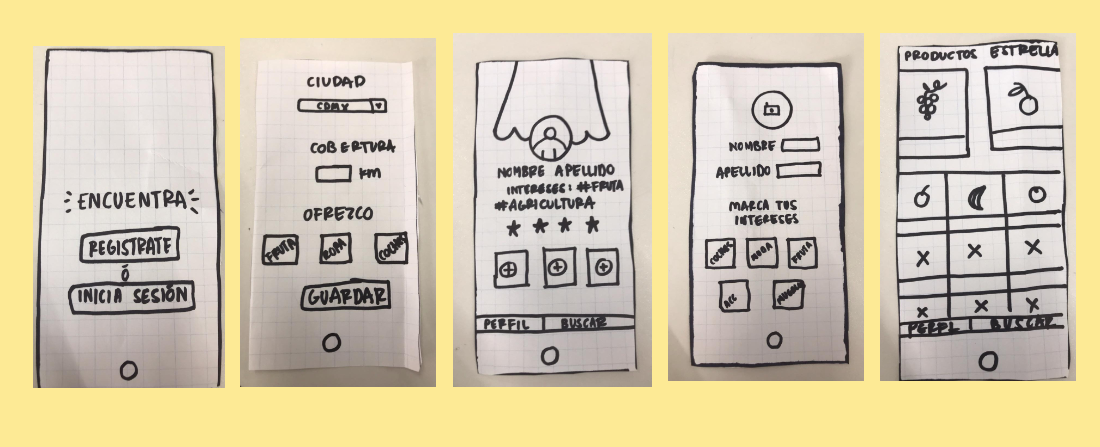 ENCUENTRA
REGISTRATE
Ó
INICIA SESIÓN
CIUDAD
CDMX
COBERTURA
km
OFREZCO
FRUTA
ROPA
COCHES
GUARDAR
NOMBRE APELLIDO
INTERESES: #FRUTA
#AGRICULTURA
PERFIL BUSCAR
NOMBRE
APELLIDO
MARCA TUS
INTERESES
COCHES
MODA
FRUTA
PRODUCTOS ESTRELLA
PERFIL BUSCAR